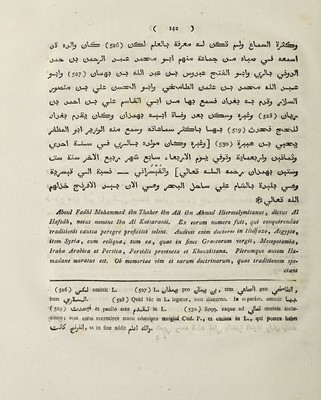 ( 142 )
وكثرة السماع ولم تكن له معرفة بالعلم لكن (526) كان والده قد
اسمعه في صباه من جماعة منهم ابو محمد عبد الرحمن بن حمد
الدوني بالري وابو الفتح عبدوس بن عبد الله بن (527) وابو
عبد الله محمد بن عثمان وابو الحسن علي بن منصور
السلار وقدم به بغداد فسمع بها من ابي القاسم علي بن احمد بن
(528) وغيره وسكن بعد وفاة ابيه بهمدان وكان يقدم بغداد
للحج فحدث (529) بها باكثر سماعاته وسمع منه الوزير ابو المظفر
يحيى بن هبيرة (530) وغيره وكان مولده بالري في سنة احدى
وثمانين واربعماية وتوفي يوم الاربعاء سابع شهر ربيع الاخر سنة ست
وستين بهمدان رحمه الله تعالى] والقيسراني — نسبة الى قيسرية
وهي بليدة بالشام على ساحل البحر وهي الان بيد الافرنج خذلهم
الله تعالى
Aboul Fadhl Mohammed ibn Thaher ibn Ali ibn Ahmed Hierosolymitanus, dictus Al
Hafedh, notus nomine Ibn Al Kaisarani. Ex eorum numero fuit, qui conquirendae
traditionis caussa peregre profecti solent. Audivit enim doctores in Hedjazo, Aegypto,
item Syria, cum reliqua, tum ea, quae in fines Graecorum vergit, Mesopotamia,
Iraka Arabica et Persica, Persidis provincia et Khuzistana. Plerumque autem Ha-
madane moratus est. Ob memoriae vim et earum doctrinarum, quae traditionem spe-
ctant
(526) لكن omittit L. (527) L. pro pro
(528) Quid hic in L. legatur, non discerno. In superiore, omittit بها.
(529) et paullo ante in L. (530) Seqq. usque ad omittit
margini Cod. P., et omissa in L., qui postea habet
et in fine addit والله اعلم.